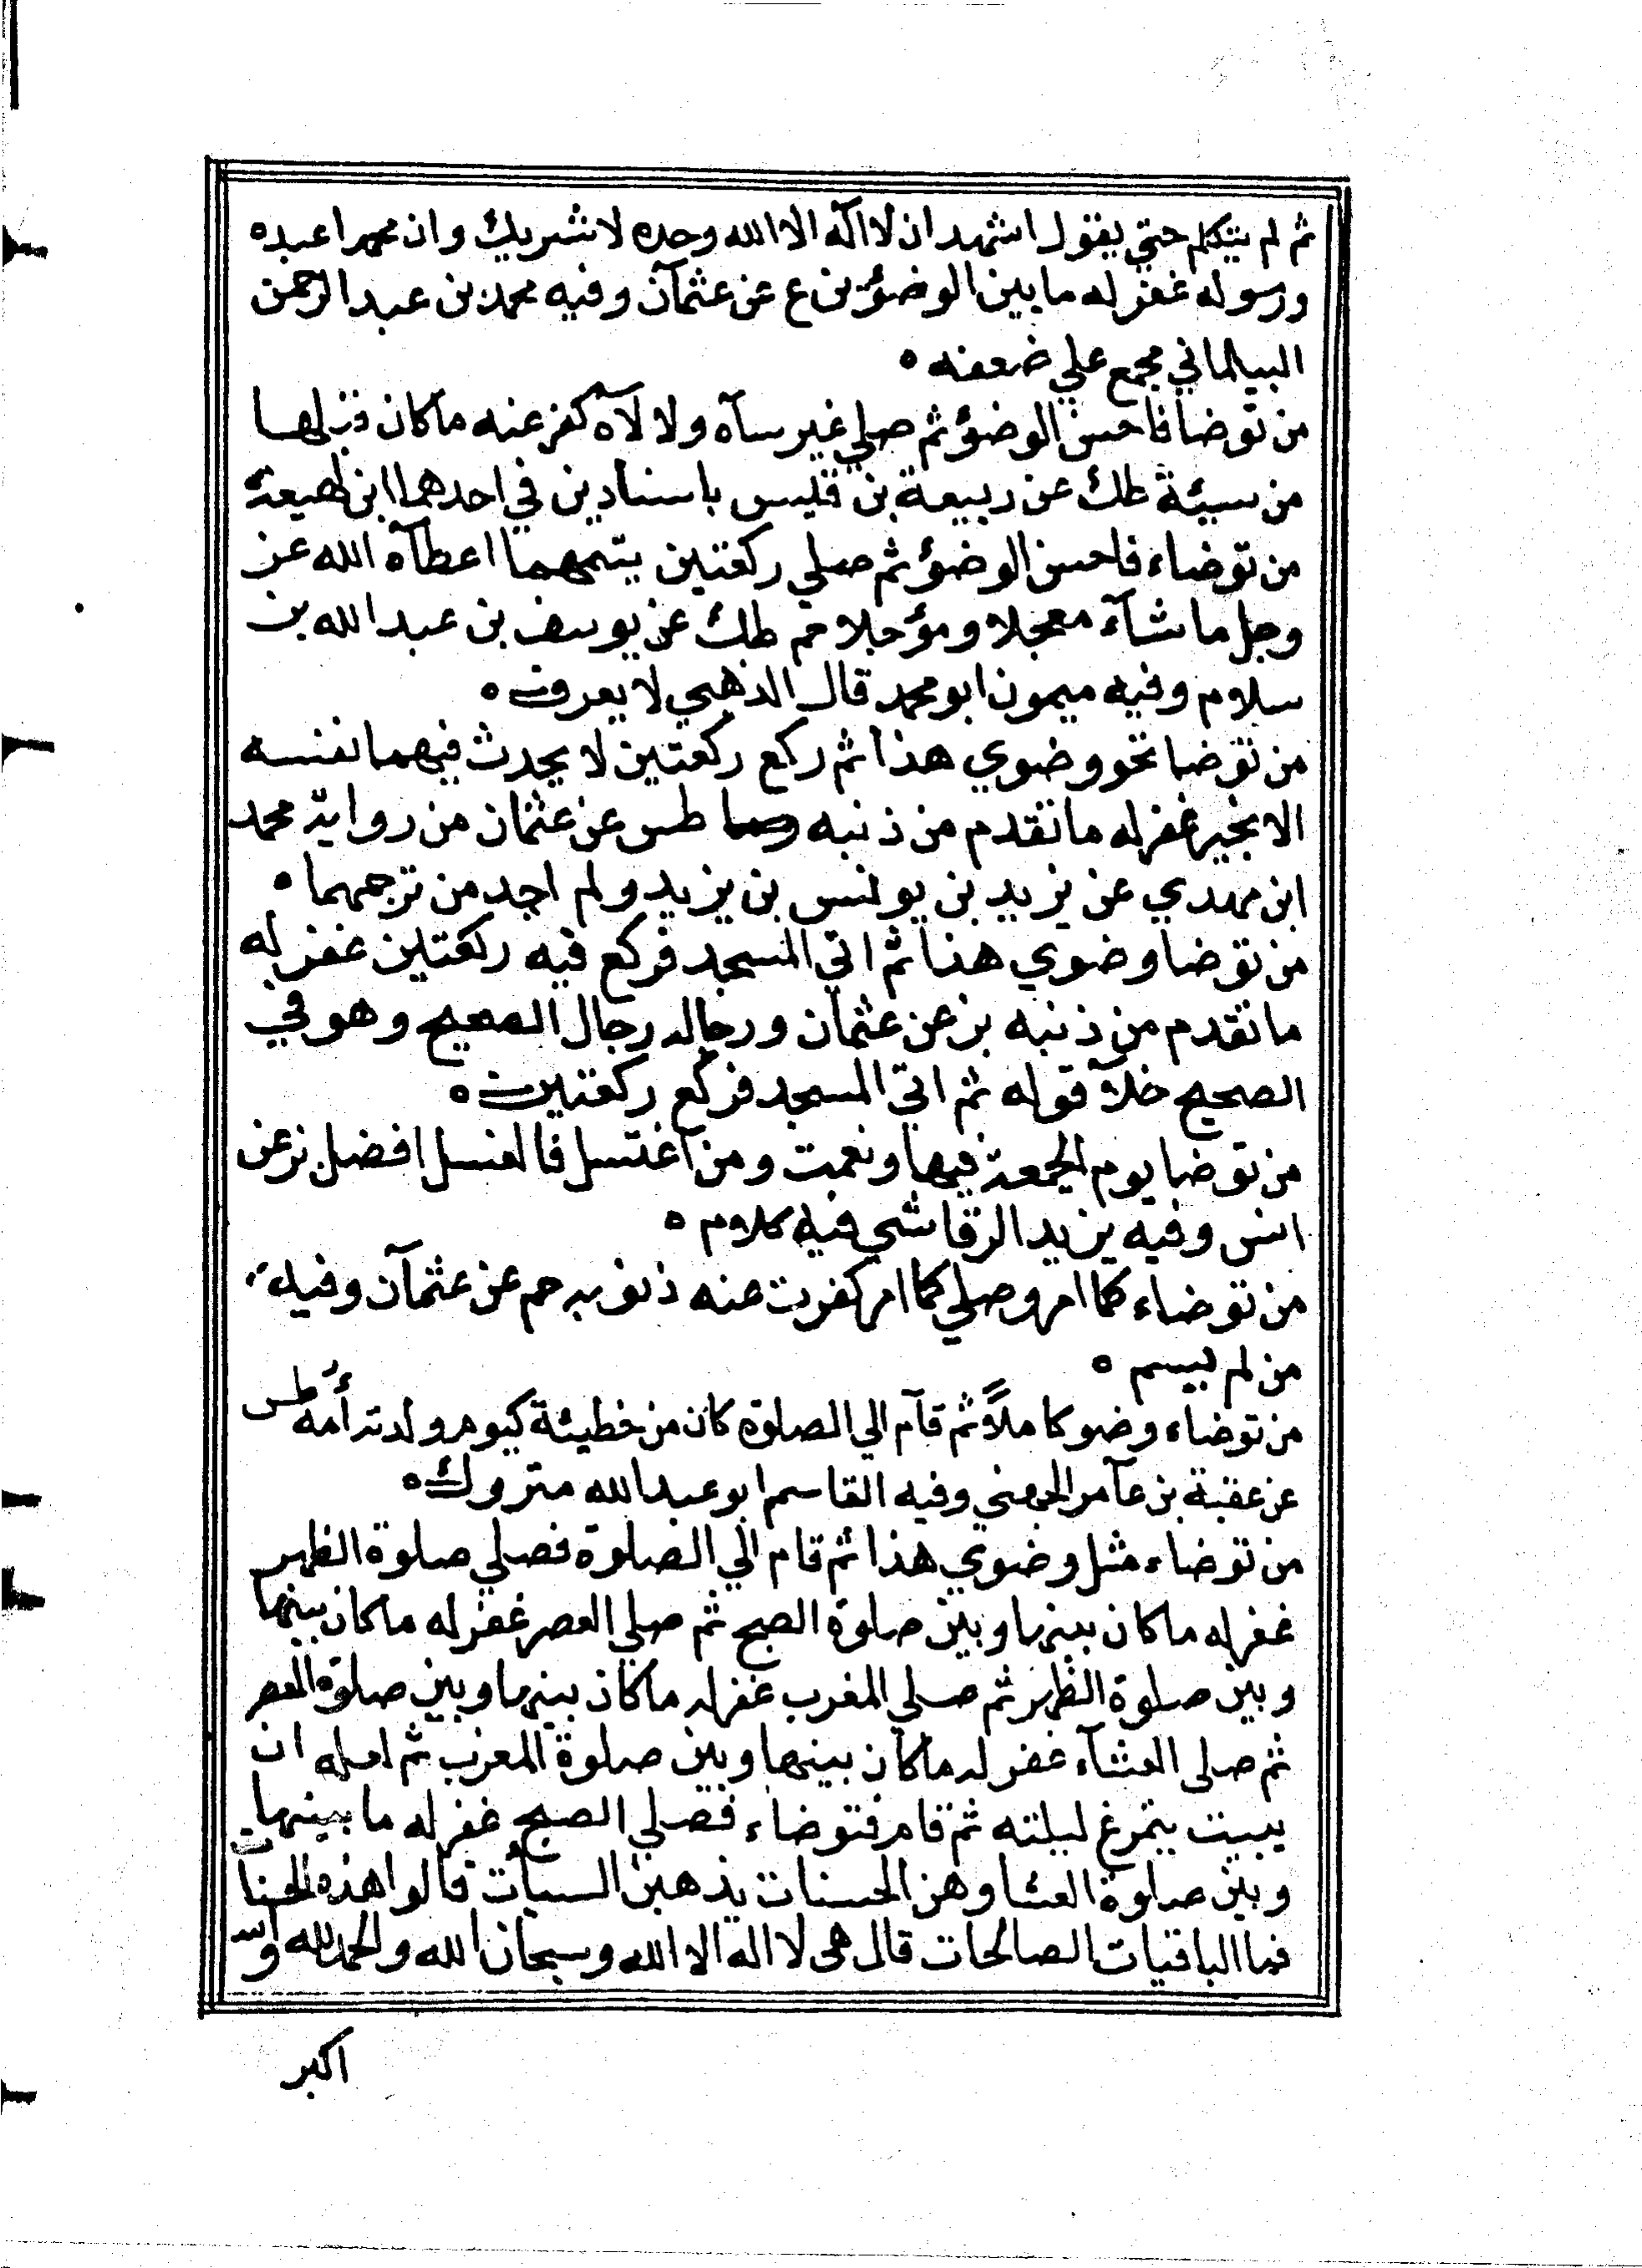 ثم لم يتكلم حتي يقول اشهد ان لا اله الا الله وحده لا شريك وان محمدا عبده
ورسوله غفر له ما بين الوضؤين ع عن عثمآن وفيه محمد بن عبد الرحمن
البيالماني مجمع علي ضعفه ٥
من توضا فاحسن الوضؤ ثم صلي غير سآه ولا لآه كفر عنه ما كان قبلها
من سيئة طك عن ربيعة بن قليس باسنادين في احدهما ابن لهيعة
من توضاء فاحسن الوضؤ ثم صلي ركعتين يتمهما اعطآه الله عز
وجل ما شآء معجلا ومؤجلا حم طك عن يوسف بن عبد الله بن
سلام وفيه ميمون ابو محمد قال الذهبي لا يعرف ٥
من توضا نحو وضوي هذا ثم ركع ركعتين لا يحدث فيهما نفسه
الا بخير غفر له ما تقدم من ذنبه طس عن عثمان من رواية محمد
ابن مهدي عن يزيد بن يونس بن يزيد ولم اجد من ترجمهما ٥
من توضا وضوي هذا ثم اتي المسجد فركع فيه ركعتين غفر له
ما تقدم من ذنبه بز عن عثمان ورجاله رجال الصحيح وهو في
الصحيح خلآ قوله ثم اتي المسجد فركع ركعتين ٥
من توضا يوم الجمعة فبها ونعمت ومن اغتسل فالغسل افضل بز عن
انس وفيه يزيد الرقاشي فيه كلام ٥
من توضاء كما امر وصلي كما امر كفرت عنه ذنوبه حم عن عثمآن وفيه
من لم يسم ٥
من توضاء وضو كاملاً ثم قآم الي الصلوة كان من خطيئة كيوم ولدته أمه طس
عن عقبة بن عآمر الجهني وفيه القاسم ابو عبد الله متروك ٥
من توضاء مثل وضوي هذا ثم قام الي الصلوة فصلي صلوة الظهر
غفر له ما كان بينها وبين صلوة الصبح ثم صلي العصر غفر له ما كان بينها
وبين صلوة الظهر ثم صلي المغرب غفر له ما كان بينها وبين صلوة العصر
ثم صلى العشآء غفر له ما كان بينها وبين صلوة المغرب ثم لعله ان
يبيت يتمرغ ليلته ثم قام فتوضاء فصلي الصبح غفر له ما بينها
وبين صلوة العشا وهن الحسنات يذهبن السيأت قالوا هذه الحسنات
فما الباقيات الصالحات قال هى لا اله الا الله وسبحان الله والحمد لله والله
اكبر